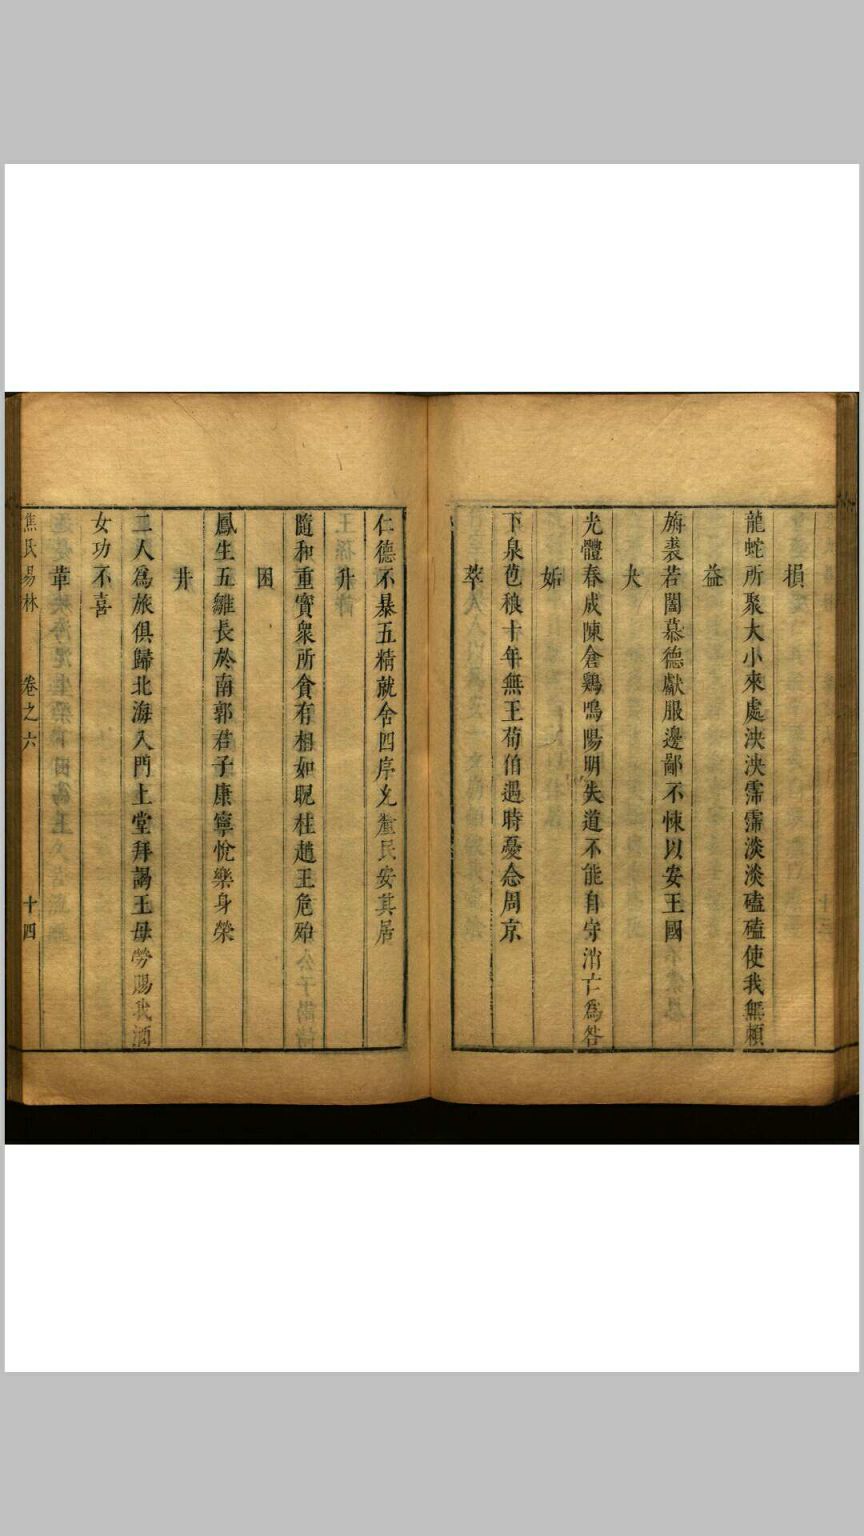 損
龍蛇所聚大小來處泱泱霈霈淡淡磕磕使我無賴
益
旃裘若闔慕德獻服邊鄙不悚以安王國
夬
光體春成陳倉鷄鳴陽明失道不能自守消亡爲咎
姤
下泉苞稂十年無王荀伯遇時憂念周京
萃
仁德不暴五精就舍四序允釐民安其居
升
隨和重寳衆所貪有相如睨柱趙王危殆
困
鳳生五雛長於南郭君子康寧悅樂身榮
井
二人爲旅俱歸北海入門上堂拜謁王母勞賜我酒
女功不喜
革
焦氏易林 卷之六 十四